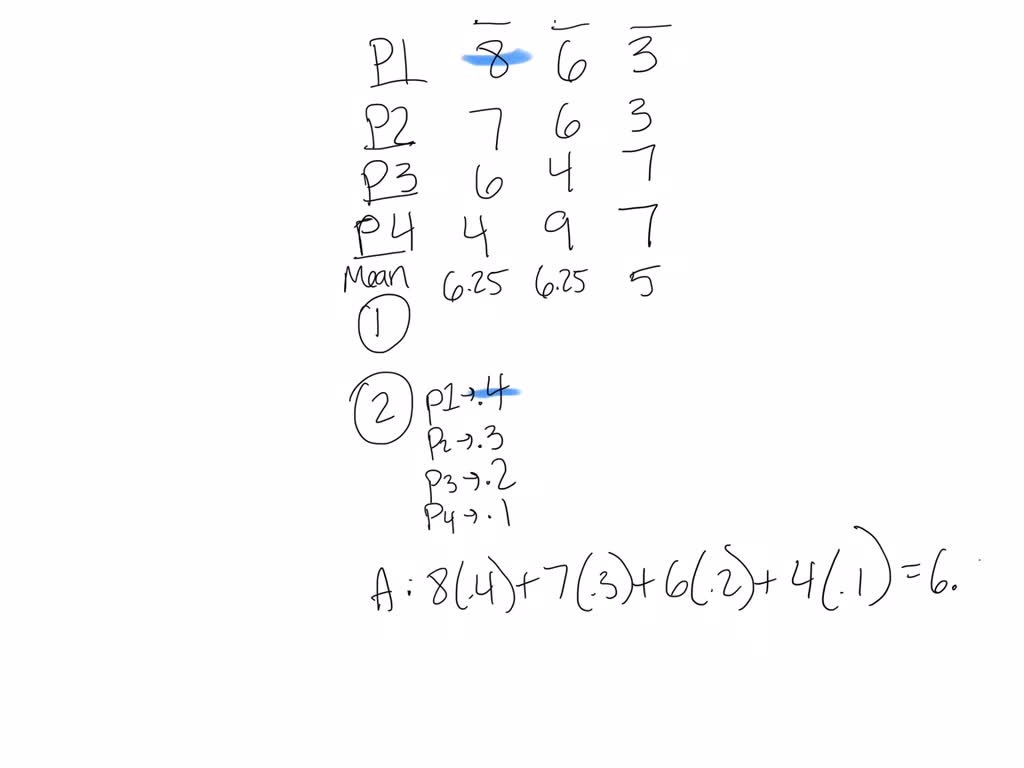 P1 8 6 3
P2 7 6 3
P3 6 4 7
P4 4 9 7
Mean 6.25 6.25 5
1
2 P1→.4
P2→.3
P3→.2
P4→.1
A: 8(.4)+7(.3)+6(.2)+4(.1)=6.